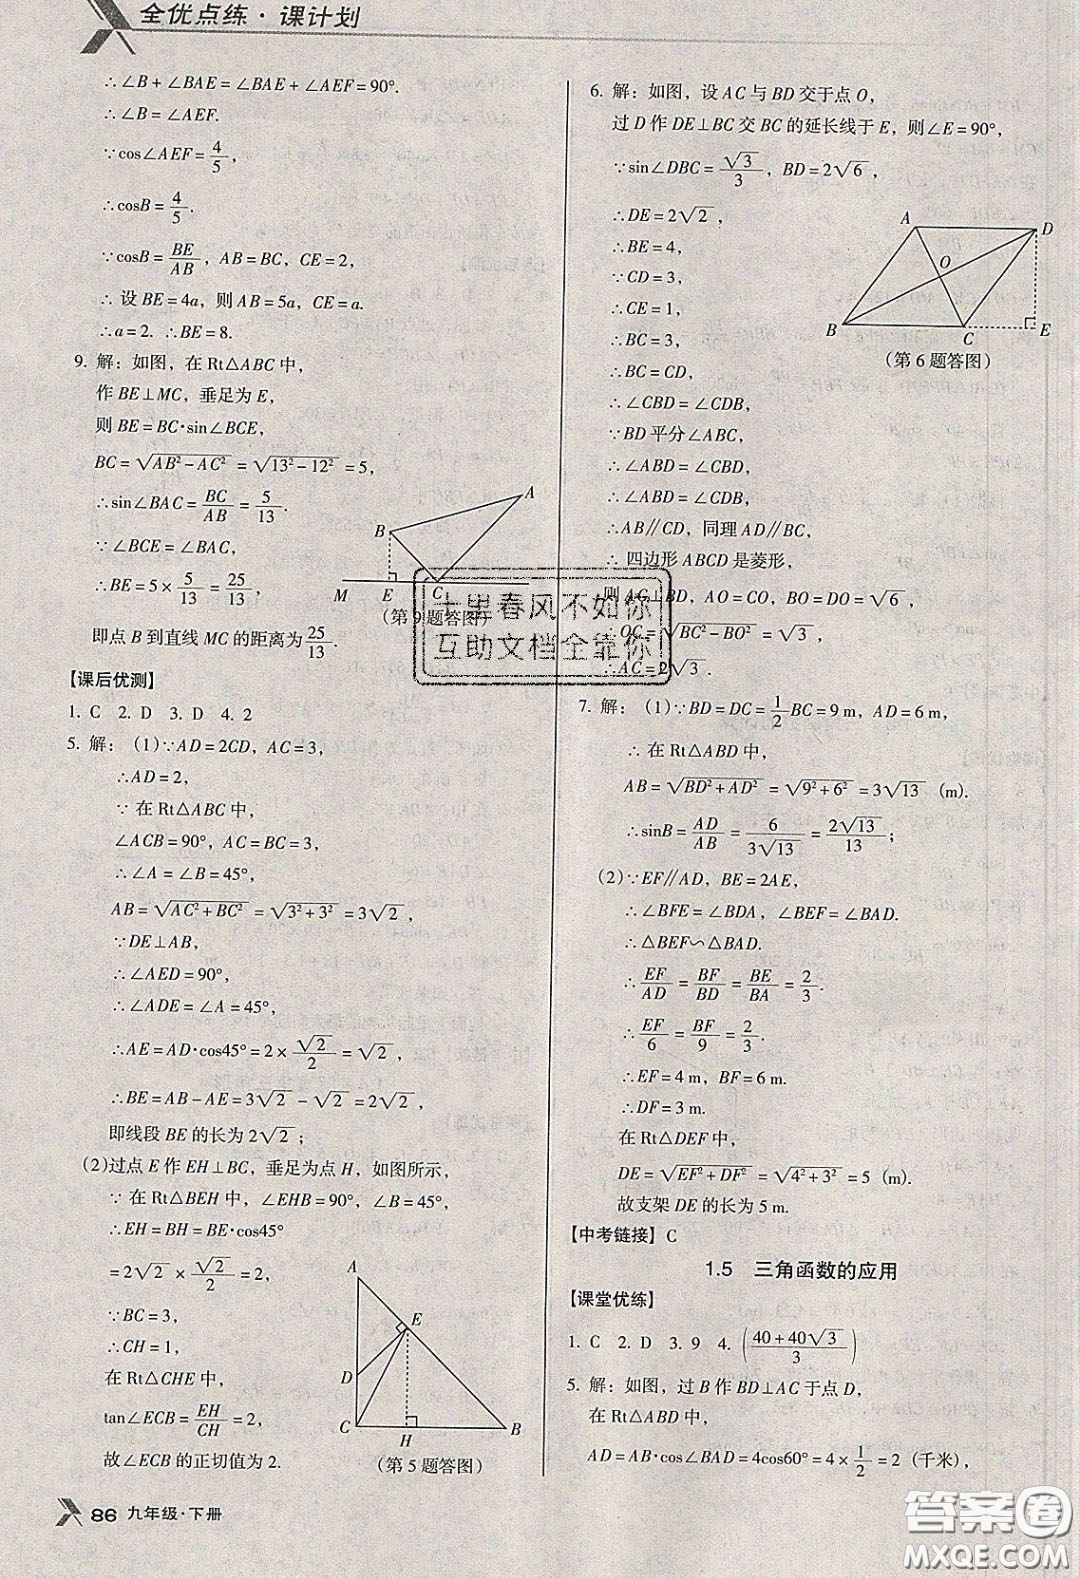 全优点练·课计划
∴∠B+∠BAE=∠BAE+∠AEF=90°.
∴∠B=∠AEF.
∵cos∠AEF=4/5,
∴cosB=4/5.
∵cosB=BE/AB, AB=BC, CE=2,
∴ 设BE=4a, 则AB=5a, CE=a.
∴a=2. ∴BE=8.
9. 解：如图，在Rt△ABC中，
作BE⊥MC，垂足为E，
则BE=BC·sin∠BCE，
BC=√(AB²-AC²)=√(13²-12²)=5，
∴sin∠BAC=BC/AB=5/13.
∵∠BCE=∠BAC，
∴BE=5×5/13=25/13，
即点B到直线MC的距离为25/13.
A
B
M E C
(第9题答图)
【课后优测】
1. C 2. D 3. D 4. 2
5. 解：(1)∵AD=2CD，AC=3，
∴AD=2，
∵ 在Rt△ABC中，
∠ACB=90°，AC=BC=3，
∴∠A=∠B=45°，
AB=√(AC²+BC²)=√(3²+3²)=3√2，
∵DE⊥AB，
∴∠AED=90°，
∴∠ADE=∠A=45°，
∴AE=AD·cos45°=2×√2/2=√2，
∴BE=AB-AE=3√2-√2=2√2，
即线段BE的长为2√2；
(2)过点E作EH⊥BC，垂足为点H，如图所示，
∵ 在Rt△BEH中，∠EHB=90°，∠B=45°，
∴EH=BH=BE·cos45°
=2√2×√2/2=2，
∵BC=3，
∴CH=1，
在Rt△CHE中，
tan∠ECB=EH/CH=2，
故∠ECB的正切值为2.
A
E
D
C H B
(第5题答图)
86 九年级·下册
6. 解：如图，设AC与BD交于点O，
过D作DE⊥BC交BC的延长线于E，则∠E=90°，
∵sin∠DBC=√3/3，BD=2√6，
∴DE=2√2，
∴BE=4，
∵CD=3，
∴CE=1，
∴BC=3，
∴BC=CD，
∴∠CBD=∠CDB，
∵BD平分∠ABC，
∴∠ABD=∠CBD，
∴∠ABD=∠CDB，
∴AB∥CD，同理AD∥BC，
∴ 四边形ABCD是菱形，
则AC⊥BD，AO=CO，BO=DO=√6，
∴OC=√(BC²-BO²)=√3，
∴AC=2√3.
A D
O
B C E
(第6题答图)
7. 解：(1)∵BD=DC=1/2BC=9 m，AD=6 m，
∴ 在Rt△ABD中，
AB=√(BD²+AD²)=√(9²+6²)=3√13 (m).
∴sinB=AD/AB=6/(3√13)=2√13/13；
(2)∵EF∥AD，BE=2AE，
∴∠BFE=∠BDA，∠BEF=∠BAD.
∴△BEF∽△BAD.
∴EF/AD=BF/BD=BE/BA=2/3.
∴EF/6=BF/9=2/3.
∴EF=4 m，BF=6 m.
∴DF=3 m.
在Rt△DEF中，
DE=√(EF²+DF²)=√(4²+3²)=5 (m).
故支架DE的长为5 m.
【中考链接】 C
1.5 三角函数的应用
【课堂优练】
1. C 2. D 3. 9 4. ((40+40√3)/3)
5. 解：如图，过B作BD⊥AC于点D，
在Rt△ABD中，
AD=AB·cos∠BAD=4cos60°=4×1/2=2（千米），
十里春风不如你
互助文档全靠你
答案圈
MXQE.COM